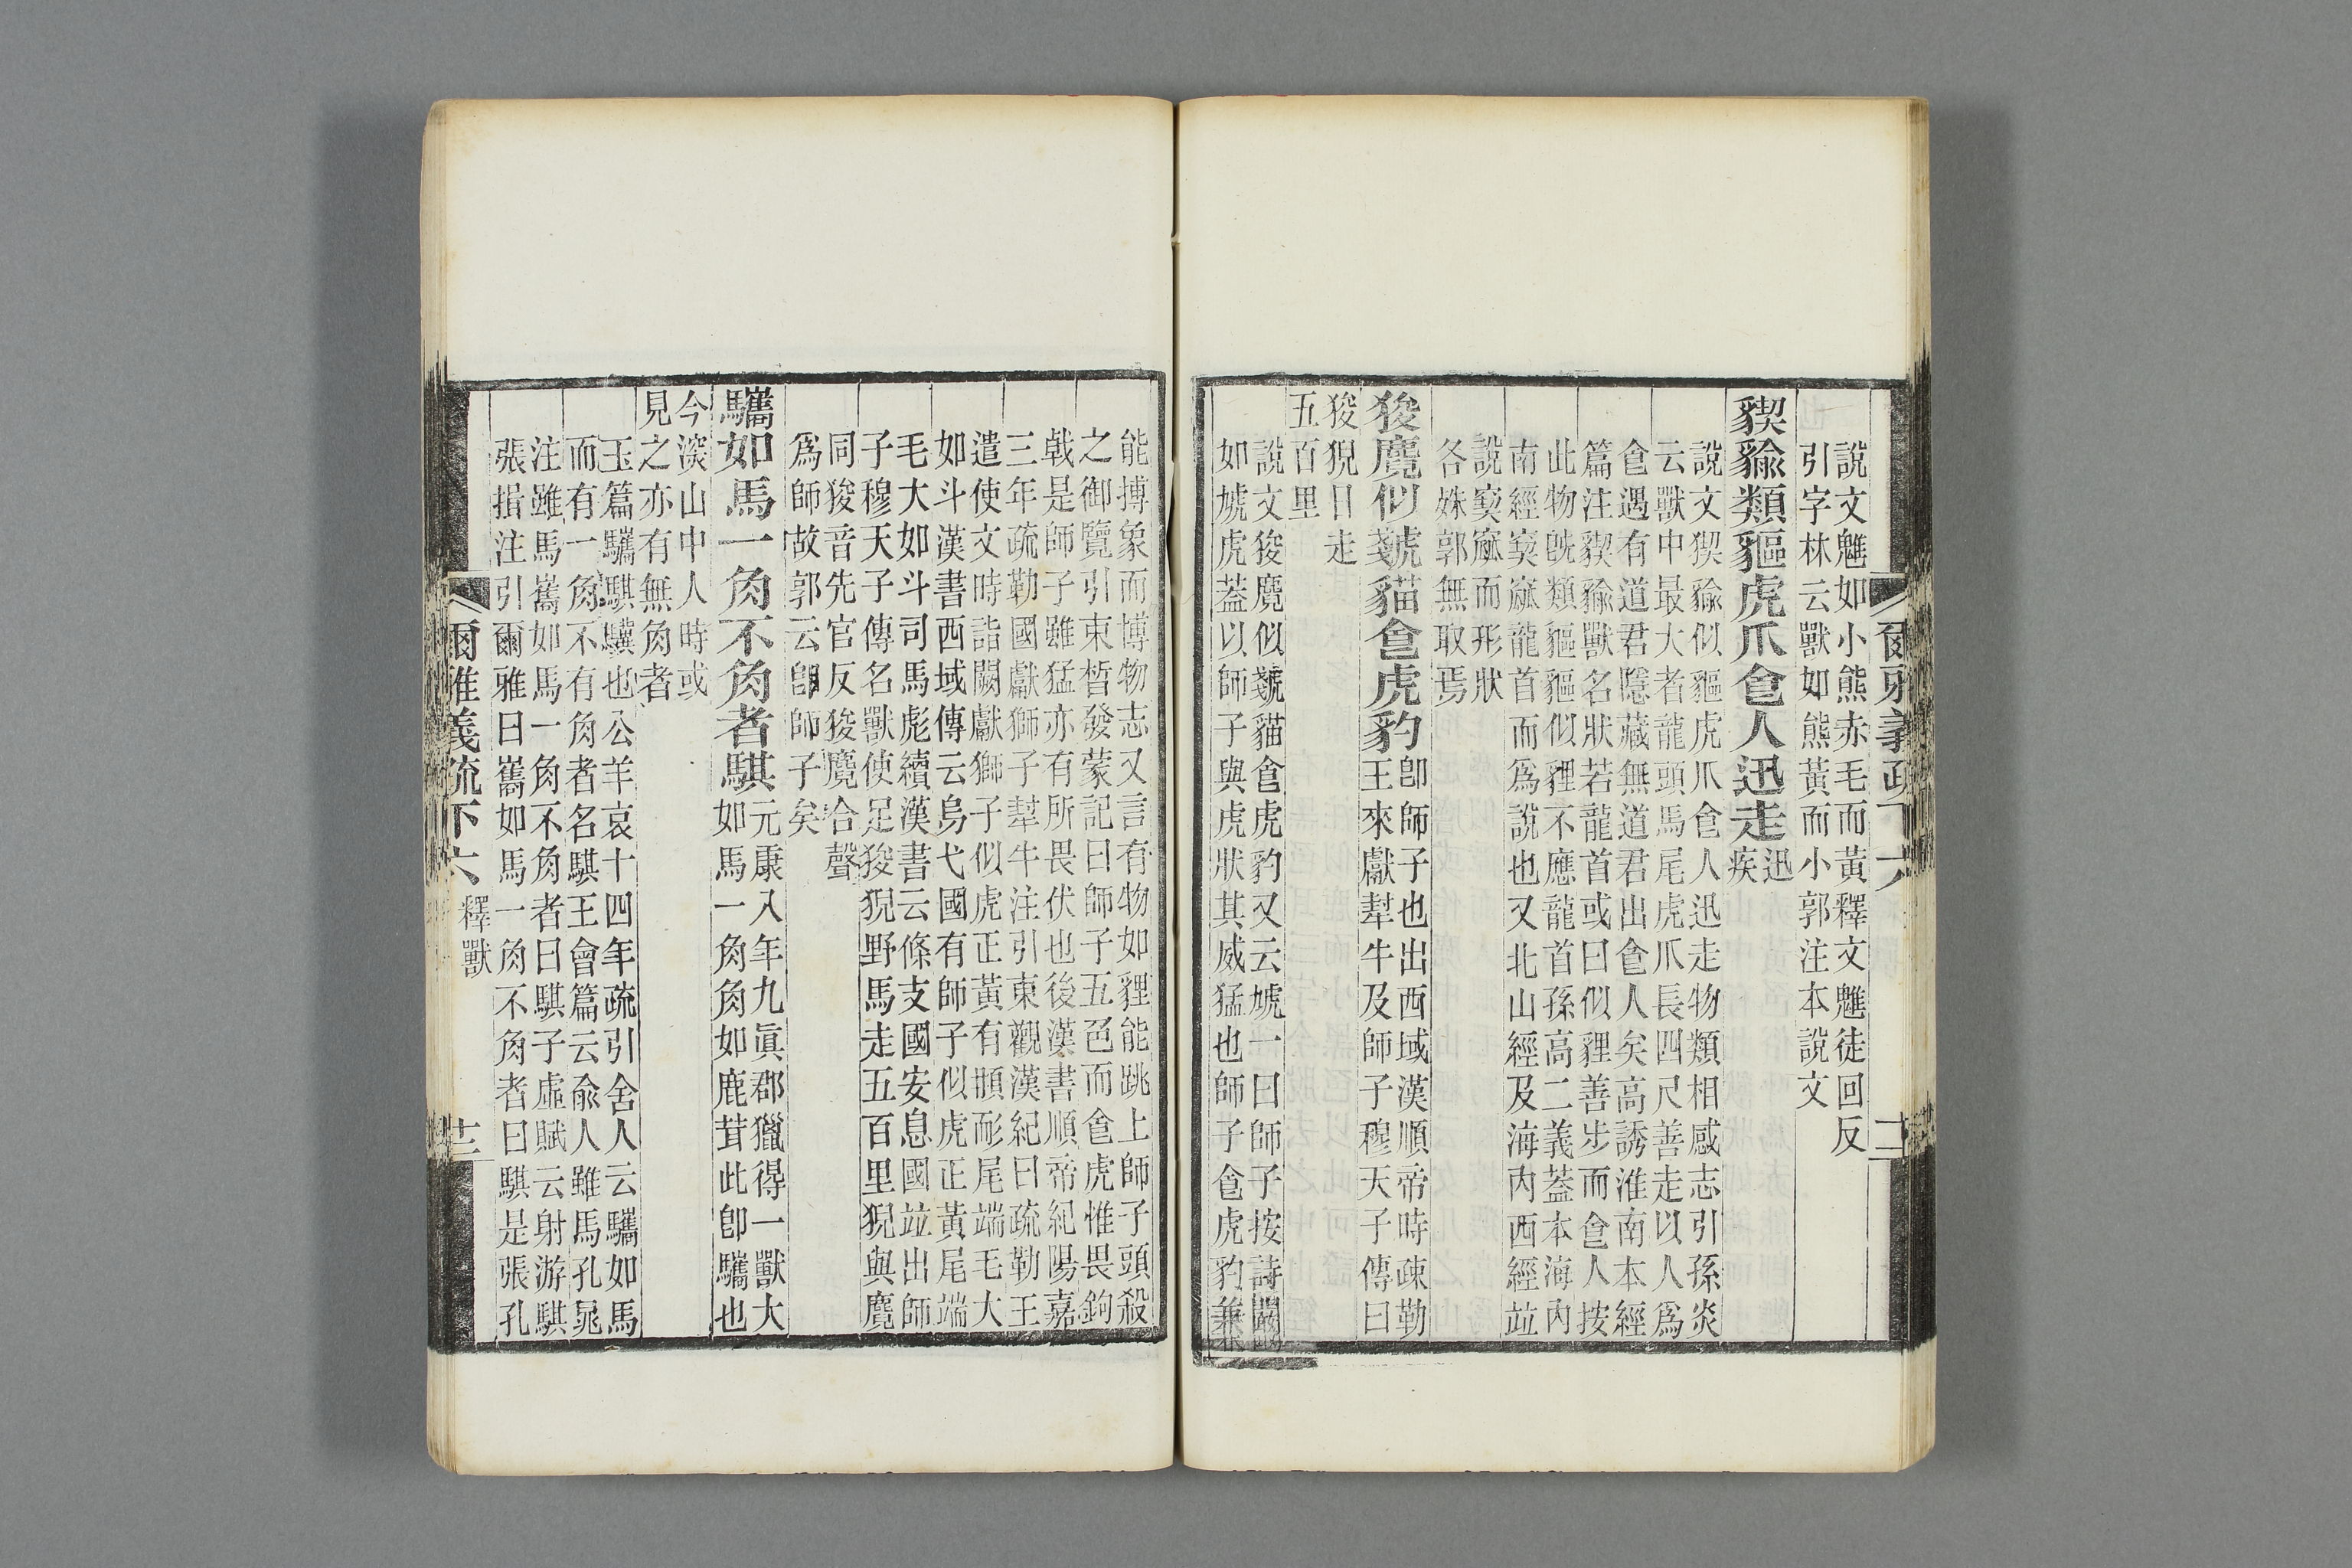 爾雅義疏下六
說文魋如小熊赤毛而黃釋文魋徒回反
引字林云獸如熊黃而小郭注本說文
貏貐類貙虎爪食人迅走迅
疾
說文猰貐似貙虎爪食人迅走物類相感志引孫炎
云獸中最大者龍頭馬尾虎爪長四尺善走以人爲
食遇有道君隱藏無道君出食人矣高誘淮南本經
篇注猰貐獸名狀若龍首或曰似貍善步而食人按
此物旣類貙貙似貍不應龍首孫高二義蓋本海內
南經窫窳龍首而爲說也又北山經及海內西經竝
說窫窳而形狀
各姝郭無取焉
狻麑似虦貓食虎豹卽師子也出西域漢順帝時疎勒
王來獻犎牛及師子穆天子傳曰
狻猊日走
五百里
說文狻麑似虦貓食虎豹又云虓一曰師子按詩闞
如虓虎蓋以師子與虎狀其威猛也師子食虎豹兼
能搏象而博物志又言有物如貍能跳上師子頭殺
之御覽引束晳發蒙記曰師子五色而食虎惟畏鉤
戟是師子雖猛亦有所畏伏也後漢書順帝紀陽嘉
三年疏勒國獻獅子犎牛注引東觀漢紀曰疏勒王
遣使文時詣闕獻獅子似虎正黃有髯耏尾端毛大
如斗漢書西域傳云烏弋國有師子似虎正黃尾端
毛大如斗司馬彪續漢書云條支國安息國竝出師
子穆天子傳名獸使足狻猊野馬走五百里猊與麑
同狻音先官反狻麑合聲
爲師故郭云卽師子矣
驨如馬一角不角者騏元康八年九眞郡獵得一獸大
如馬一角角如鹿茸此卽驨也
今深山中人時或
見之亦有無角者
玉篇驨騏驥也公羊哀十四年疏引舍人云驨如馬
而有一角不有角者名騏王會篇云兪人雖馬孔晁
注雖馬巂如馬一角不角者曰騏子虛賦云射游騏
張揖注引爾雅曰巂如馬一角不角者曰騏是張孔
爾雅義疏下六
釋獸
十二